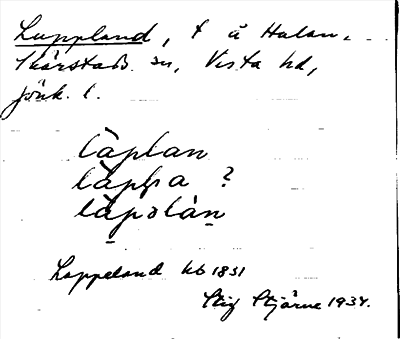 Lappland, t å Hulan.
Skärstads sn, Vista hd,
Jönk. l.
làplan
làpḷa ?
làpəlàn̠
Lappeland hb 1831
Stig Stjärne 1934.